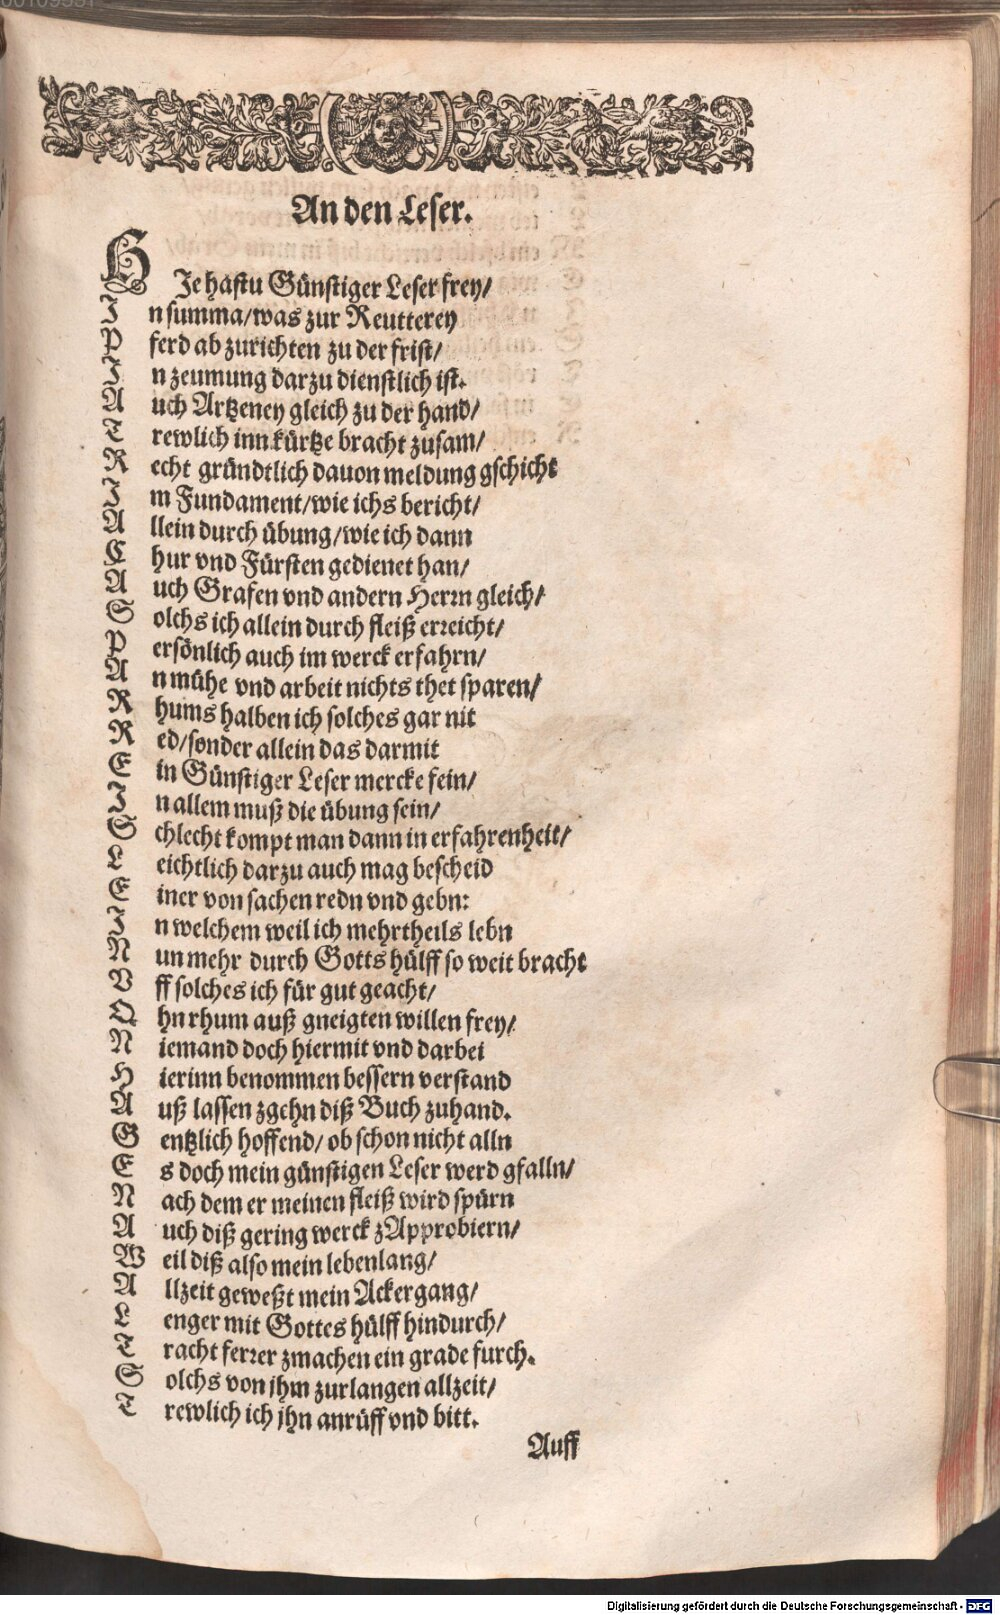 An den Leser.
HJe hastu Günstiger Leser frey/
In summa/was zur Reutterey
Pferd ab zurichten zu der frist/
In zeumung darzu dienstlich ist.
Auch Artzeney gleich zu der hand/
Trewlich inn kürtze bracht zusam/
Recht gründtlich dauon meldung gschicht
Im Fundament/wie ichs bericht/
Allein durch übung/wie ich dann
Chur vnd Fürsten gedienet han/
Auch Grafen vnd andern Herrn gleich/
Solchs ich allein durch fleiß erreicht/
Persönlich auch im werck erfahrn/
An mühe vnd arbeit nichts thet sparen/
Rhums halben ich solches gar nit
Red/sonder allein das darmit
Ein Günstiger Leser mercke fein/
In allem muß die übung sein/
Schlecht kompt man dann in erfahrenheit/
Leichtlich darzu auch mag bescheid
Einer von sachen redn vnd gebn:
In welchem weil ich mehrtheils lebn
Nun mehr durch Gotts hülff so weit bracht
Vff solches ich für gut geacht/
Ohn rhum auß gneigten willen frey/
Niemand doch hiermit vnd darbei
Hierinn benommen bessern verstand
Auß lassen zgehn diß Buch zuhand.
Gentzlich hoffend/ ob schon nicht alln
Es doch mein günstigen Leser werd gfalln/
Nach dem er meinen fleiß wird spürn
Auch diß gering werck zApprobiern/
Weil diß also mein lebenlang/
Allzeit geweßt mein Ackergang/
Lenger mit Gottes hülff hindurch/
Tracht ferrer zmachen ein grade furch.
Solchs von jhm zurlangen allzeit/
Trewlich ich jhn anrüff vnd bitt.
Auff
Digitalisierung gefördert durch die Deutsche Forschungsgemeinschaft - DFG